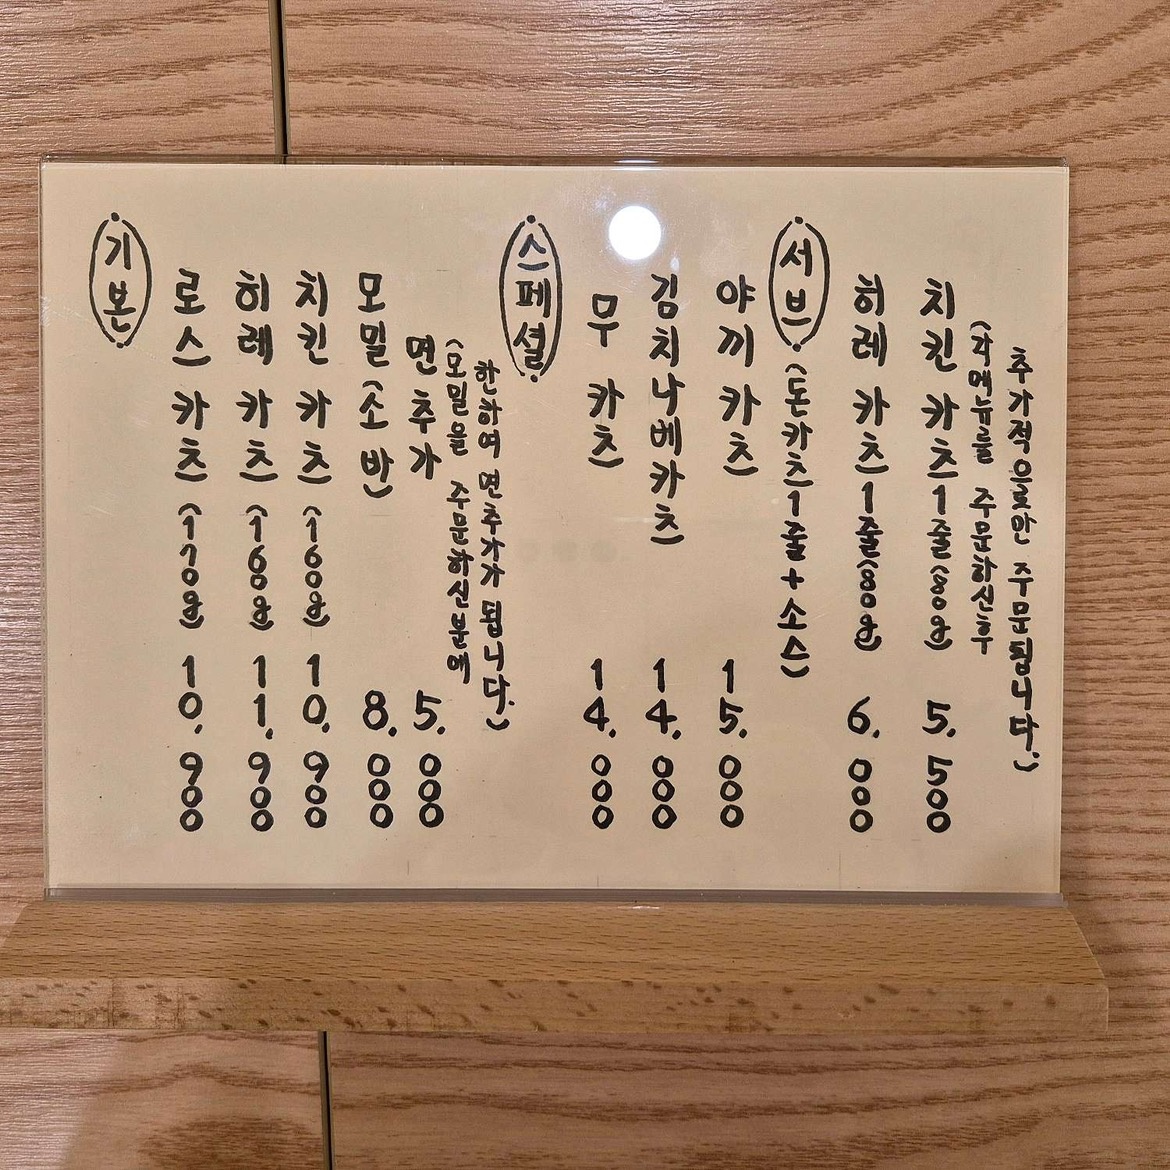 기본
로스 카츠 (170g) 10,900
히레 카츠 (160g) 11,900
치킨 카츠 (160g) 10,900
모밀 (소반) 8,000
면 추가 5,000
(모밀을 주문하신분에
한하여 면추가가 됩니다.)
스페셜
무 카츠 14,000
김치나베카츠 14,000
야끼 카츠 15,000
서브 (돈카츠 1줄 + 소스)
히레 카츠 1줄 (80g) 6,000
치킨 카츠 1줄 (80g) 5,500
(각메뉴를 주문하신후
추가적으로만 주문됩니다.)